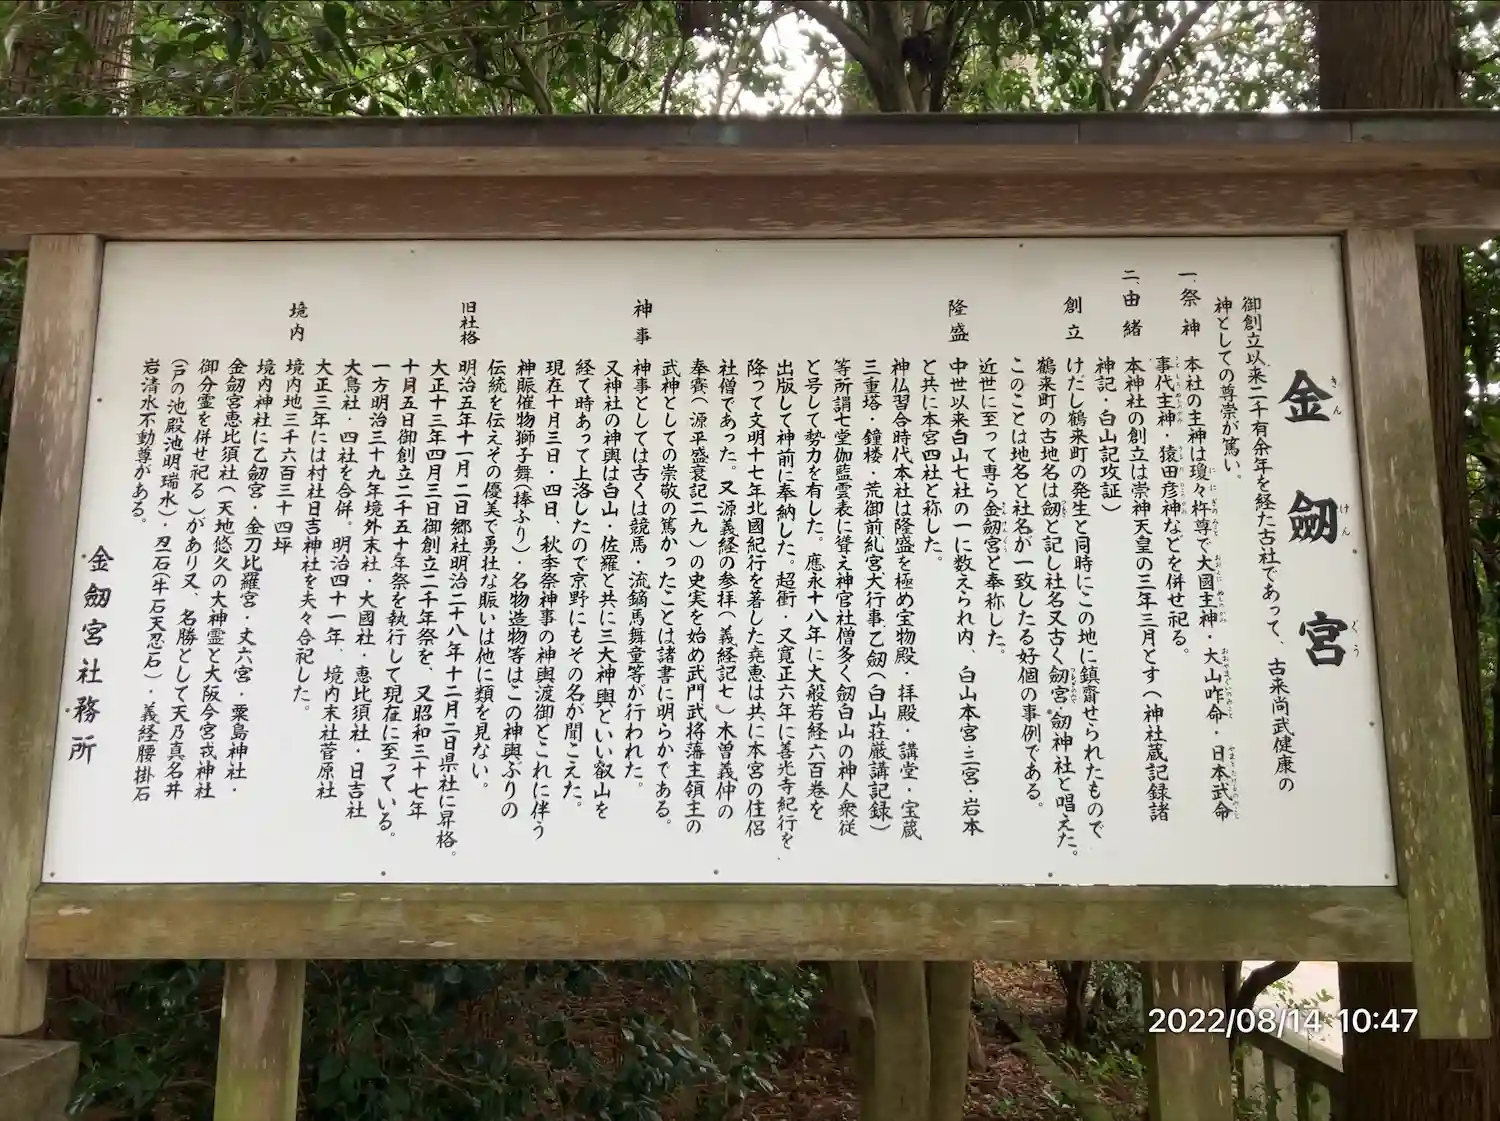 金劔宮
きんけんぐう
御創立以来二千有余年を経た古社であって、古来尚武健康の
神としての尊崇が篤い。
一、祭神 本社の主神は瓊々杵尊で大國主神・大山咋命・日本武命
事代主神・猿田彦神などを併せ祀る。
二、由緒 本神社の創立は崇神天皇の三年三月とす(神社蔵記録諸
神記・白山記攻証)
創立 けだし鶴来町の発生と同時にこの地に鎮齋せられたもので
鶴来町の古地名は劔と記し社名又古く劔宮・劔神社と唱えた。
このことは地名と社名が一致したる好個の事例である。
近世に至って専ら金劔宮と奉称した。
隆盛 中世以来白山七社の一に数えられ内、白山本宮・三宮・岩本
と共に本宮四社と称した。
神仏習合時代本社は隆盛を極め宝物殿・拝殿・講堂・宝蔵
三重塔・鐘楼・荒御前糺宮大行事乙劔(白山荘厳講記録)
等所謂七堂伽藍雲表に聳え神官社僧多く劔白山の神人衆従
と号して勢力を有した。應永十八年に大般若経六百巻を
出版して神前に奉納した。超衝・又寛正六年に善光寺紀行を
降って文明十七年北國紀行を著した尭恵は共に本宮の住侶
社僧であった。又源義経の参拝(義経記七)木曽義仲の
奉賽(源平盛衰記二九)の史実を始め武門武将藩主領主の
武神としての崇敬の篤かったことは諸書に明らかである。
神事 神事としては古くは競馬・流鏑馬舞童等が行われた。
又神社の神輿は白山・佐羅と共に三大神輿といい叡山を
経て時あって上洛したので京野にもその名が聞こえた。
現在十月三日・四日、秋季祭神事の神輿渡御とこれに伴う
神賑催物獅子舞(捧ふり)・名物造物等はこの神輿ぶりの
伝統を伝えその優美で勇壮な賑いは他に類を見ない。
旧社格 明治五年十一月二日郷社明治二十八年十二月二日県社に昇格。
大正十三年四月三日御創立二千年祭を、又昭和三十七年
十月五日御創立二千五十年祭を執行して現在に至っている。
一方明治三十九年境外末社・大國社・恵比須社・日吉社
大鳥社・四社を合併。明治四十一年、境内末社菅原社
大正三年には村社日吉神社を夫々合祀した。
境内 境内地三千六百三十四坪
境内神社に乙劔宮・金刀比羅宮・丈六宮・粟島神社・
金劔宮恵比須社(天地悠久の大神霊と大阪今宮戎神社
御分霊を併せ祀る)があり又、名勝として天乃真名井
(戸の池殿池明瑞水)、忍石(牛石天忍石)・義経腰掛石
岩清水不動尊がある。
金劔宮社務所
2022/08/14 10:47